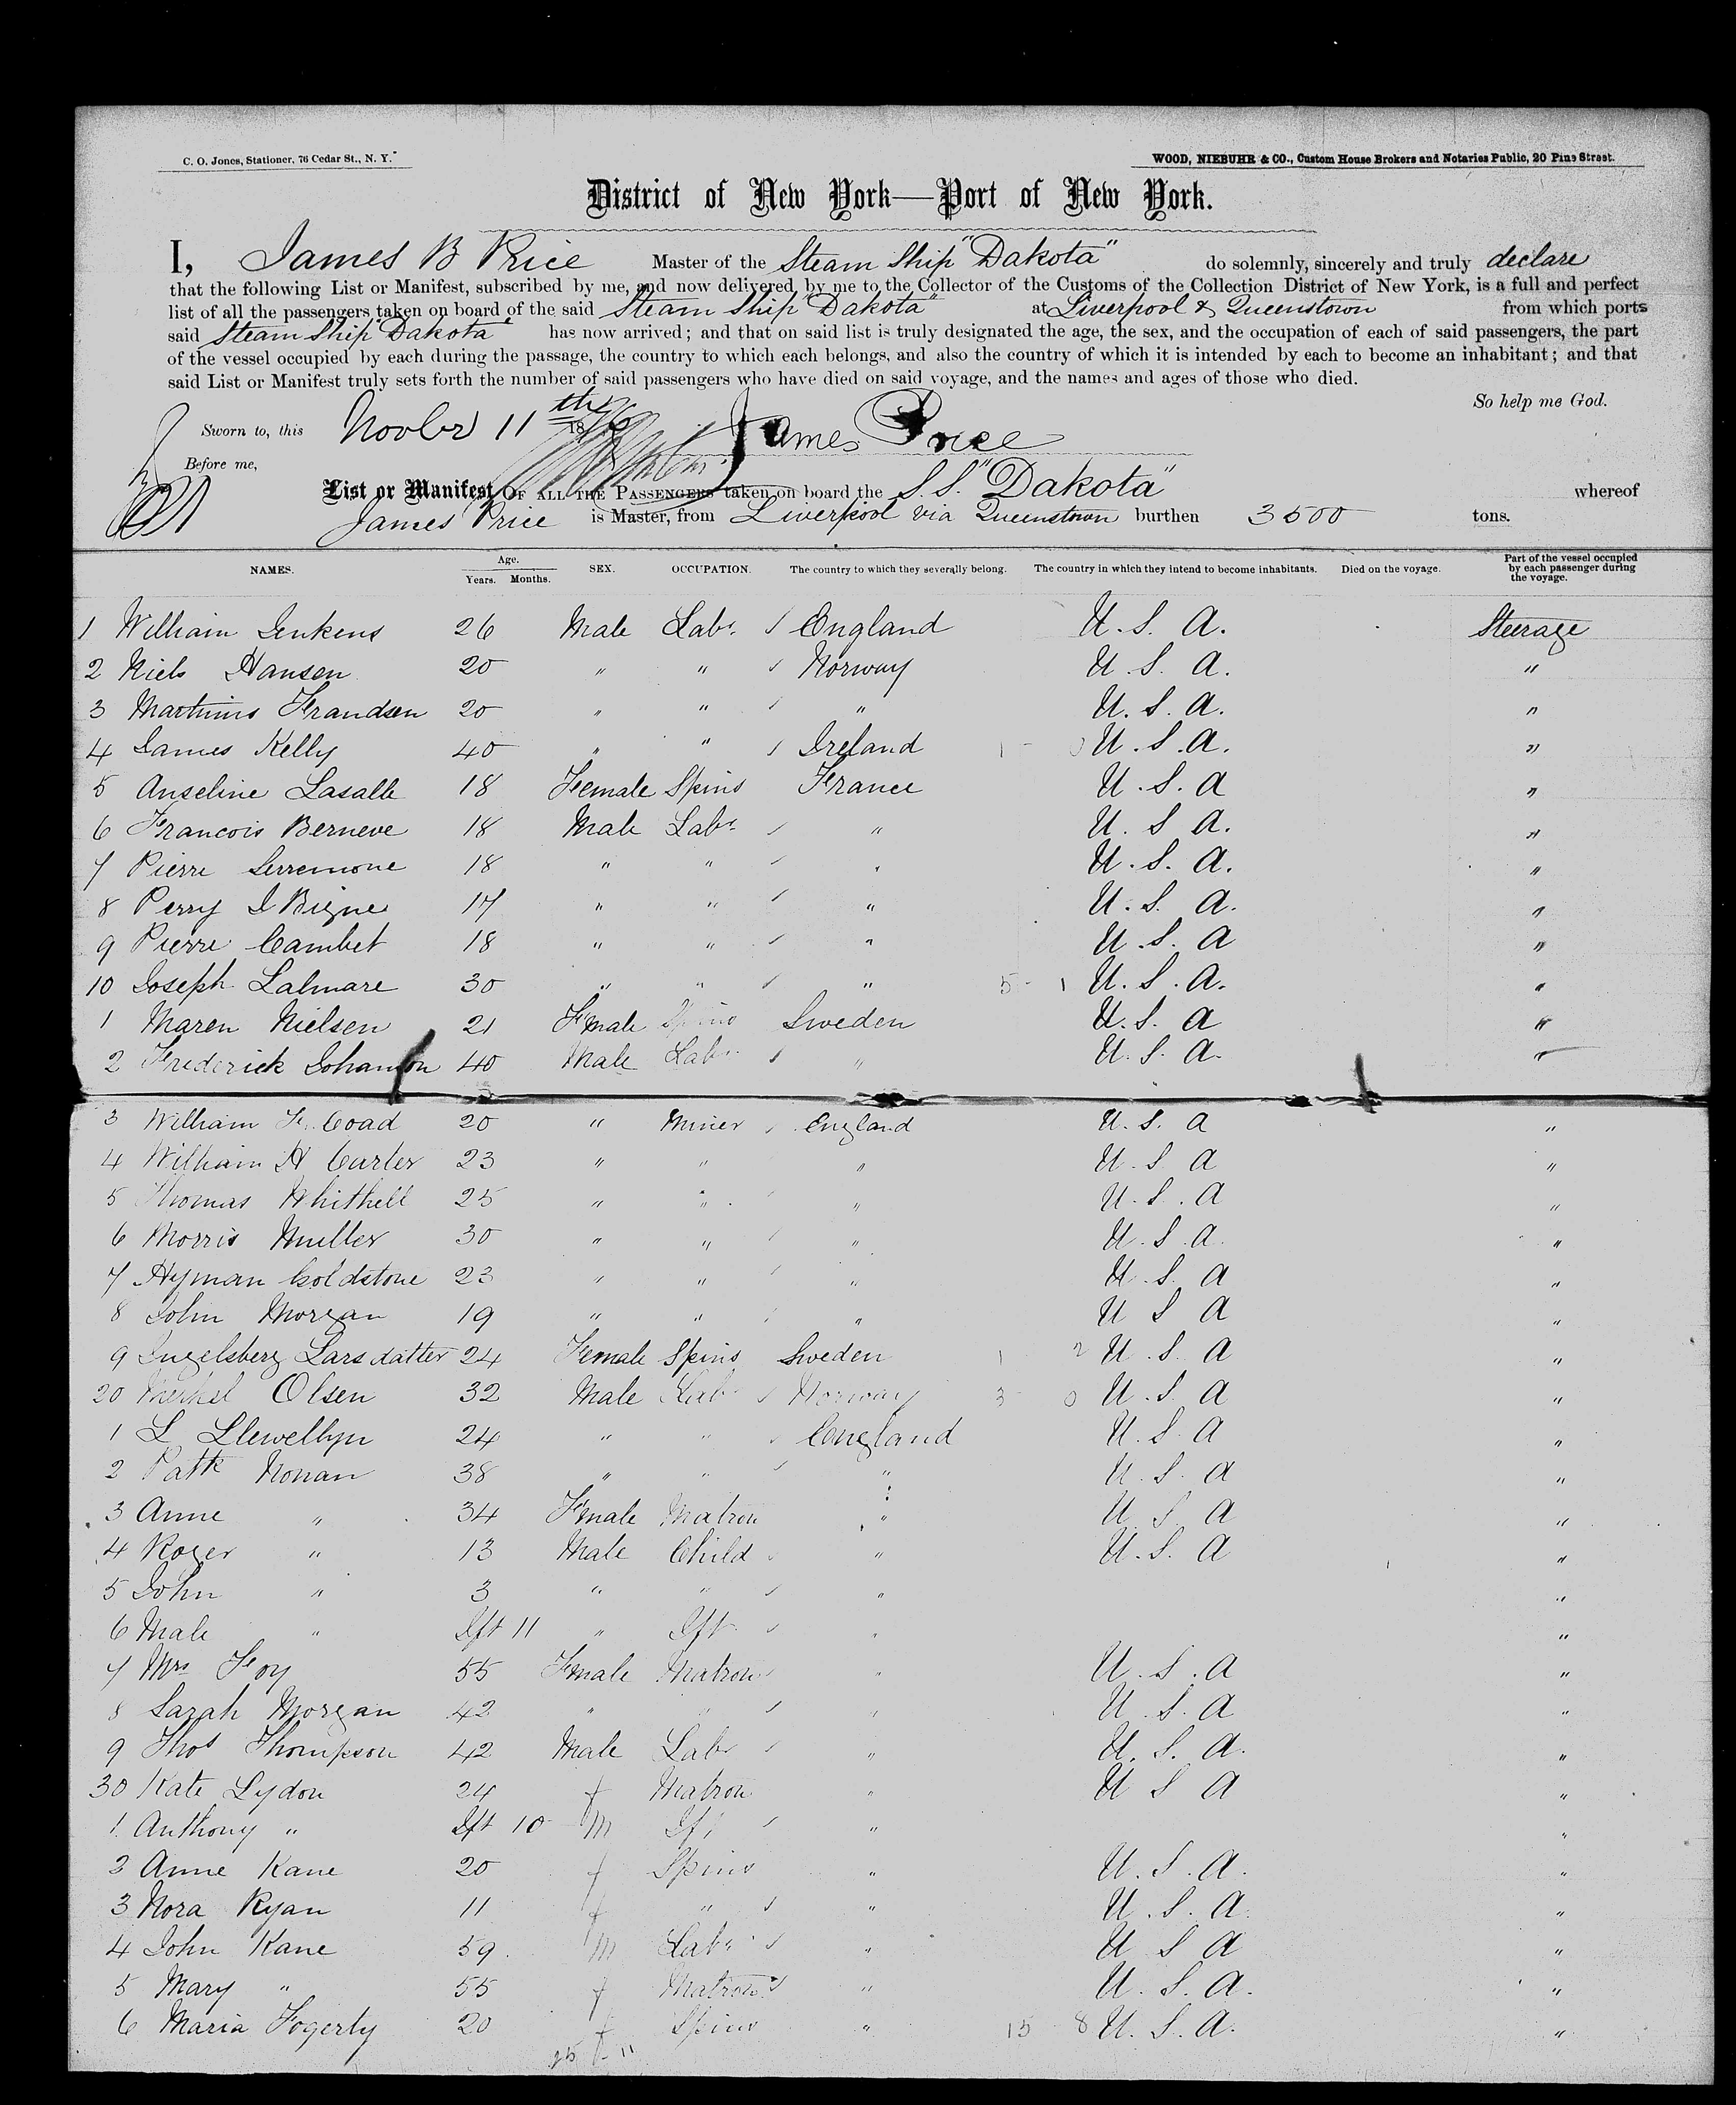 C. O. Jones, Stationer, 76 Cedar St., N. Y.
WOOD, NIEBUHR & CO., Custom House Brokers and Notaries Public, 20 Pine Street.
District of New York—Port of New York.
I, James B Price Master of the Steam Ship "Dakota" do solemnly, sincerely and truly declare
that the following List or Manifest, subscribed by me, and now delivered by me to the Collector of the Customs of the Collection District of New York, is a full and perfect
list of all the passengers taken on board of the said Steam Ship "Dakota" at Liverpool & Queenstown from which ports
said Steam Ship "Dakota" has now arrived; and that on said list is truly designated the age, the sex, and the occupation of each of said passengers, the part
of the vessel occupied by each during the passage, the country to which each belongs, and also the country of which it is intended by each to become an inhabitant; and that
said List or Manifest truly sets forth the number of said passengers who have died on said voyage, and the names and ages of those who died.
So help me God.
Sworn to, this Novbr 11th 18 James Price
Before me,
List or Manifest OF ALL THE PASSENGERS taken on board the S.S. "Dakota" whereof
James Price is Master, from Liverpool via Queenstown burthen 3500 tons.
NAMES. Age. Years. Months. SEX. OCCUPATION. The country to which they severally belong. The country in which they intend to become inhabitants. Died on the voyage. Part of the vessel occupied by each passenger during the voyage.
1 William Jenkens 26 Male Labr England U.S.A. Steerage
2 Niels Hansen 20 " " Norway U.S.A. "
3 Martinus Frandsen 20 " " " U.S.A. "
4 James Kelly 40 " " Ireland 1 - 0 U.S.A. "
5 Anseline Lasalle 18 Female Spins France U.S.A "
6 Francois Berneve 18 Male Labr " U.S A. "
7 Pierre Serremone 18 " " " U.S.A. "
8 Perry 17 " " " U.S.A. "
9 Pierre Cambet 18 " " " U.S.A "
10 Joseph Lalmare 30 " " " 5 - 1 U.S.A. "
1 Maren Nielsen 21 Female Spins Sweden U.S.A "
2 Frederick Johanson 40 Male Labr " U.S.A. "
3 William F. Coad 20 " Miner England U.S.A "
4 William H Carter 23 " " " U.S.A "
5 Thomas Whithell 25 " " " U.S.A "
6 Morris Muller 30 " " " U.S.A. "
7 Hyman Goldstone 23 " " " U.S.A "
8 John Morgan 19 " " " U S A "
9 Ingelsberg Larsdatter 24 Female Spins Sweden 1 2 U.S.A "
20 Olsen 32 Male Labr Norway 3 0 U.S.A "
1 L Llewellyn 24 " " England U.S.A "
2 Patk Nonan 38 " " " U.S.A "
3 Anne " 34 Female Matron " U.S.A "
4 Roger " 13 Male Child " U.S.A "
5 John " 3 " " " "
6 Male " Ift 11 " Ift " "
7 Mrs Foy 55 Female Matron " U.S.A "
8 Sarah Morgan 42 " " " U.S.A "
9 Thos Thompson 42 Male Labr " U.S.A. "
30 Kate Lydon 24 f Matron " U S A "
1 Anthony " Ift 10 m Ift " "
2 Anne Kane 20 f Spins " U.S.A. "
3 Nora Ryan 11 f " " U.S.A. "
4 John Kane 59 m Labr " U S A "
5 Mary " 55 f Matron " U.S.A. "
6 Maria Fogerty 20 f Spins " 15 8 U.S.A. "
25 11